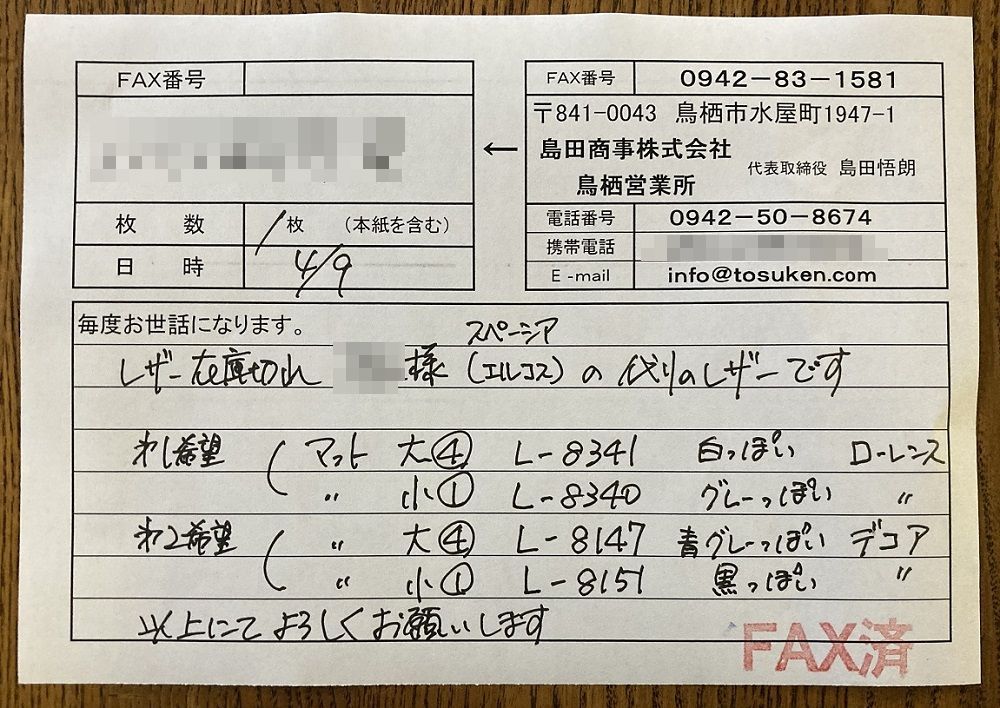 FAX番号
枚 数 1枚 (本紙を含む)
日 時 4/9
←
FAX番号 0942-83-1581
〒841-0043 鳥栖市水屋町1947-1
島田商事株式会社
代表取締役 島田悟朗
鳥栖営業所
電話番号 0942-50-8674
携帯電話
E-mail info@tosuken.com
毎度お世話になります。
スペーシア
レザー在庫切れ 様 (エルコス) の 代りのレザーです
第1希望 ( マット 大④ L-8341 白っぽい ローレンス
〃 小① L-8340 グレーっぽい 〃
第2希望 ( 〃 大④ L-8147 青グレーっぽい デコア
〃 小① L-8151 黒っぽい 〃
以上にてよろしくお願いします
FAX済